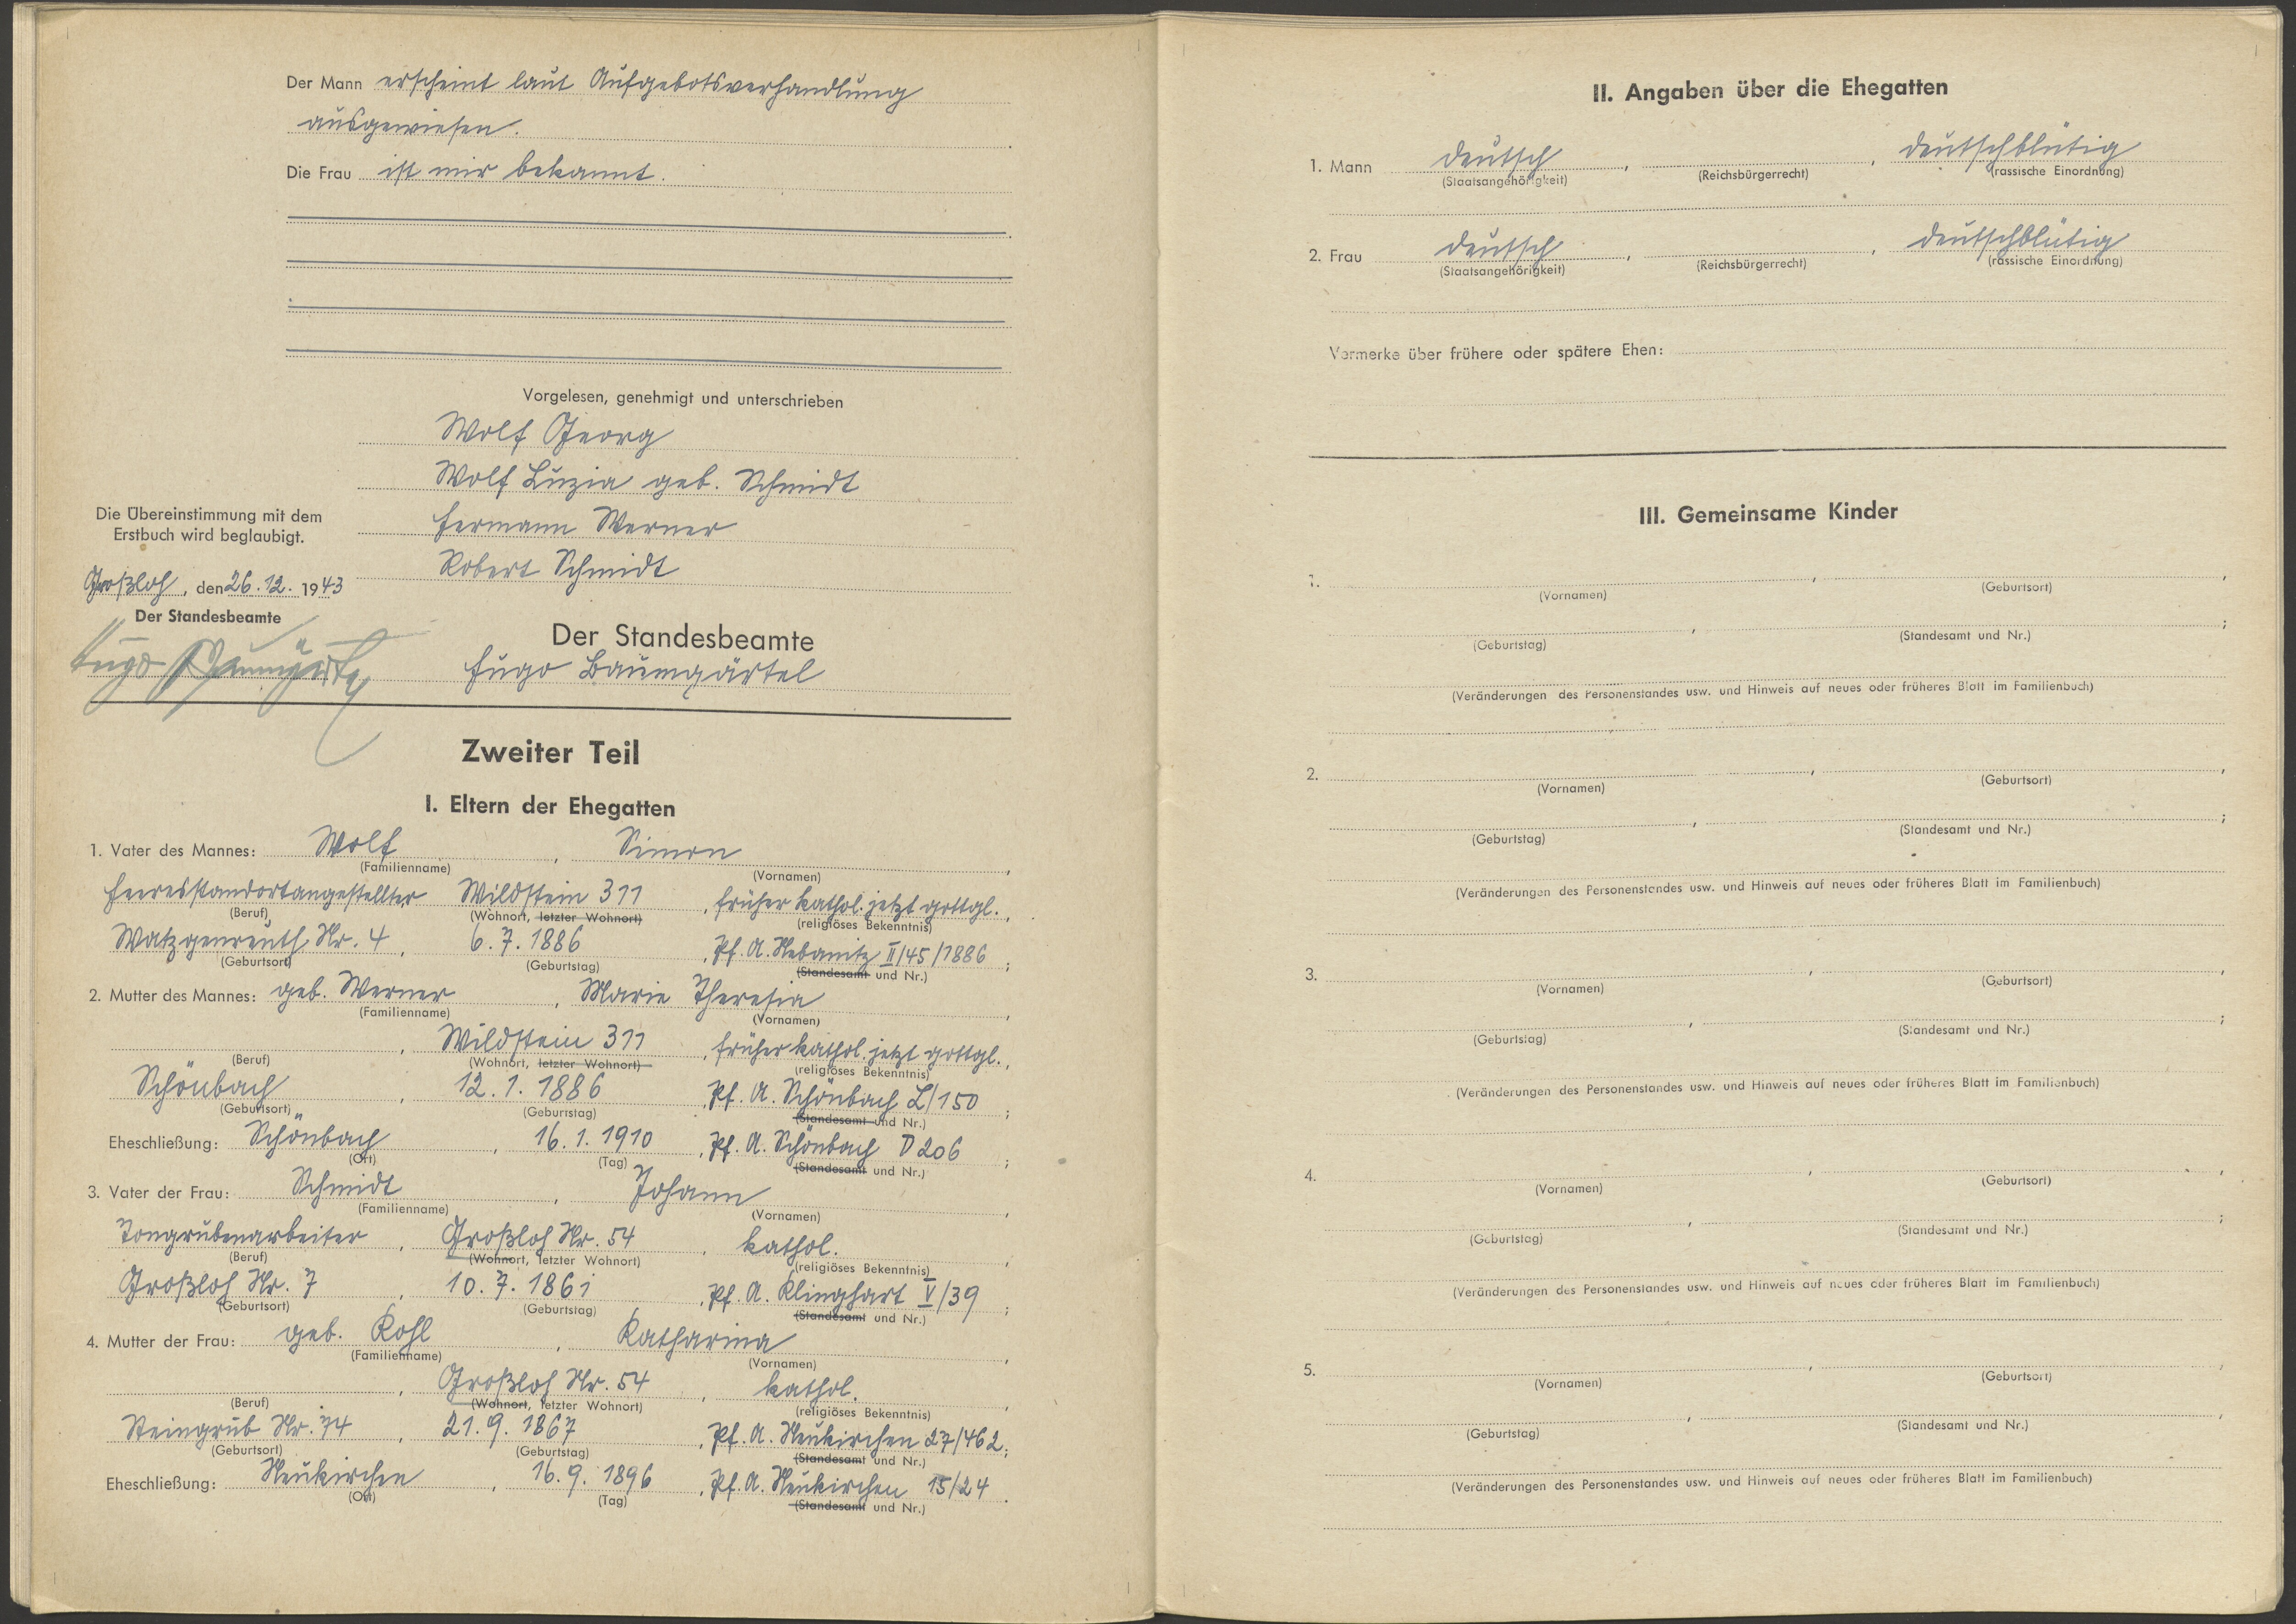 Der Mann erscheint laut Aufgebotsverhandlung
ausgewiesen.
Die Frau ist mir bekannt.
Vorgelesen, genehmigt und unterschrieben
Wolf Georg
Wolf Luzia geb. Schmidt
Hermann Werner
Robert Schmidt
Die Übereinstimmung mit dem
Erstbuch wird beglaubigt.
Großloh, den 26.12. 1943
Der Standesbeamte
Hugo Baumgärtel
Der Standesbeamte
Hugo Baumgärtel
Zweiter Teil
I. Eltern der Ehegatten
1. Vater des Mannes: Wolf, Simon,
(Familienname) (Vornamen)
Heeresstandortangestellter Wildstein 311, früher kathol. jetzt gottgl.,
(Beruf) (Wohnort, letzter Wohnort) (religiöses Bekenntnis)
Watzgenreuth Nr. 4, 6.7.1886, Pf. A. Nebanitz II/45/1886;
(Geburtsort) (Geburtstag) (Standesamt und Nr.)
2. Mutter des Mannes: geb. Werner, Marie Theresia,
(Familienname) (Vornamen)
, Wildstein 311, früher kathol. jetzt gottgl.,
(Beruf) (Wohnort, letzter Wohnort) (religiöses Bekenntnis)
Schönbach, 12.1.1886, Pf. A. Schönbach L/150;
(Geburtsort) (Geburtstag) (Standesamt und Nr.)
Eheschließung: Schönbach, 16.1.1910, Pf. A. Schönbach D 206;
(Ort) (Tag) (Standesamt und Nr.)
3. Vater der Frau: Schmidt, Johann,
(Familienname) (Vornamen)
Tongrubenarbeiter, Großloh Nr. 54, kathol.,
(Beruf) (Wohnort, letzter Wohnort) (religiöses Bekenntnis)
Großloh Nr. 7, 10.7.1861, Pf. A. Klinghart V/39;
(Geburtsort) (Geburtstag) (Standesamt und Nr.)
4. Mutter der Frau: geb. Kohl, Katharina,
(Familienname) (Vornamen)
, Großloh Nr. 54, kathol.,
(Beruf) (Wohnort, letzter Wohnort) (religiöses Bekenntnis)
Steingrub Nr. 74, 21.9.1867, Pf. A. Neukirchen 27/462;
(Geburtsort) (Geburtstag) (Standesamt und Nr.)
Eheschließung: Neukirchen, 16.9.1896, Pf. A. Neukirchen 15/24.
(Ort) (Tag) (Standesamt und Nr.)
II. Angaben über die Ehegatten
1. Mann deutsch, , deutschblütig
(Staatsangehörigkeit) (Reichsbürgerrecht) (rassische Einordnung)
2. Frau deutsch, , deutschblütig
(Staatsangehörigkeit) (Reichsbürgerrecht) (rassische Einordnung)
Vermerke über frühere oder spätere Ehen:
III. Gemeinsame Kinder
1. , ,
(Vornamen) (Geburtsort)
, ;
(Geburtstag) (Standesamt und Nr.)
(Veränderungen des Personenstandes usw. und Hinweis auf neues oder früheres Blatt im Familienbuch)
2. , ,
(Vornamen) (Geburtsort)
, ;
(Geburtstag) (Standesamt und Nr.)
(Veränderungen des Personenstandes usw. und Hinweis auf neues oder früheres Blatt im Familienbuch)
3. , ,
(Vornamen) (Geburtsort)
, ;
(Geburtstag) (Standesamt und Nr.)
(Veränderungen des Personenstandes usw. und Hinweis auf neues oder früheres Blatt im Familienbuch)
4. , ,
(Vornamen) (Geburtsort)
, ;
(Geburtstag) (Standesamt und Nr.)
(Veränderungen des Personenstandes usw. und Hinweis auf neues oder früheres Blatt im Familienbuch)
5. , ,
(Vornamen) (Geburtsort)
, ,
(Geburtstag) (Standesamt und Nr.)
(Veränderungen des Personenstandes usw. und Hinweis auf neues oder früheres Blatt im Familienbuch)